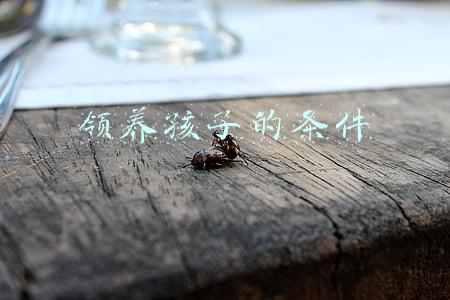 领养孩子的条件